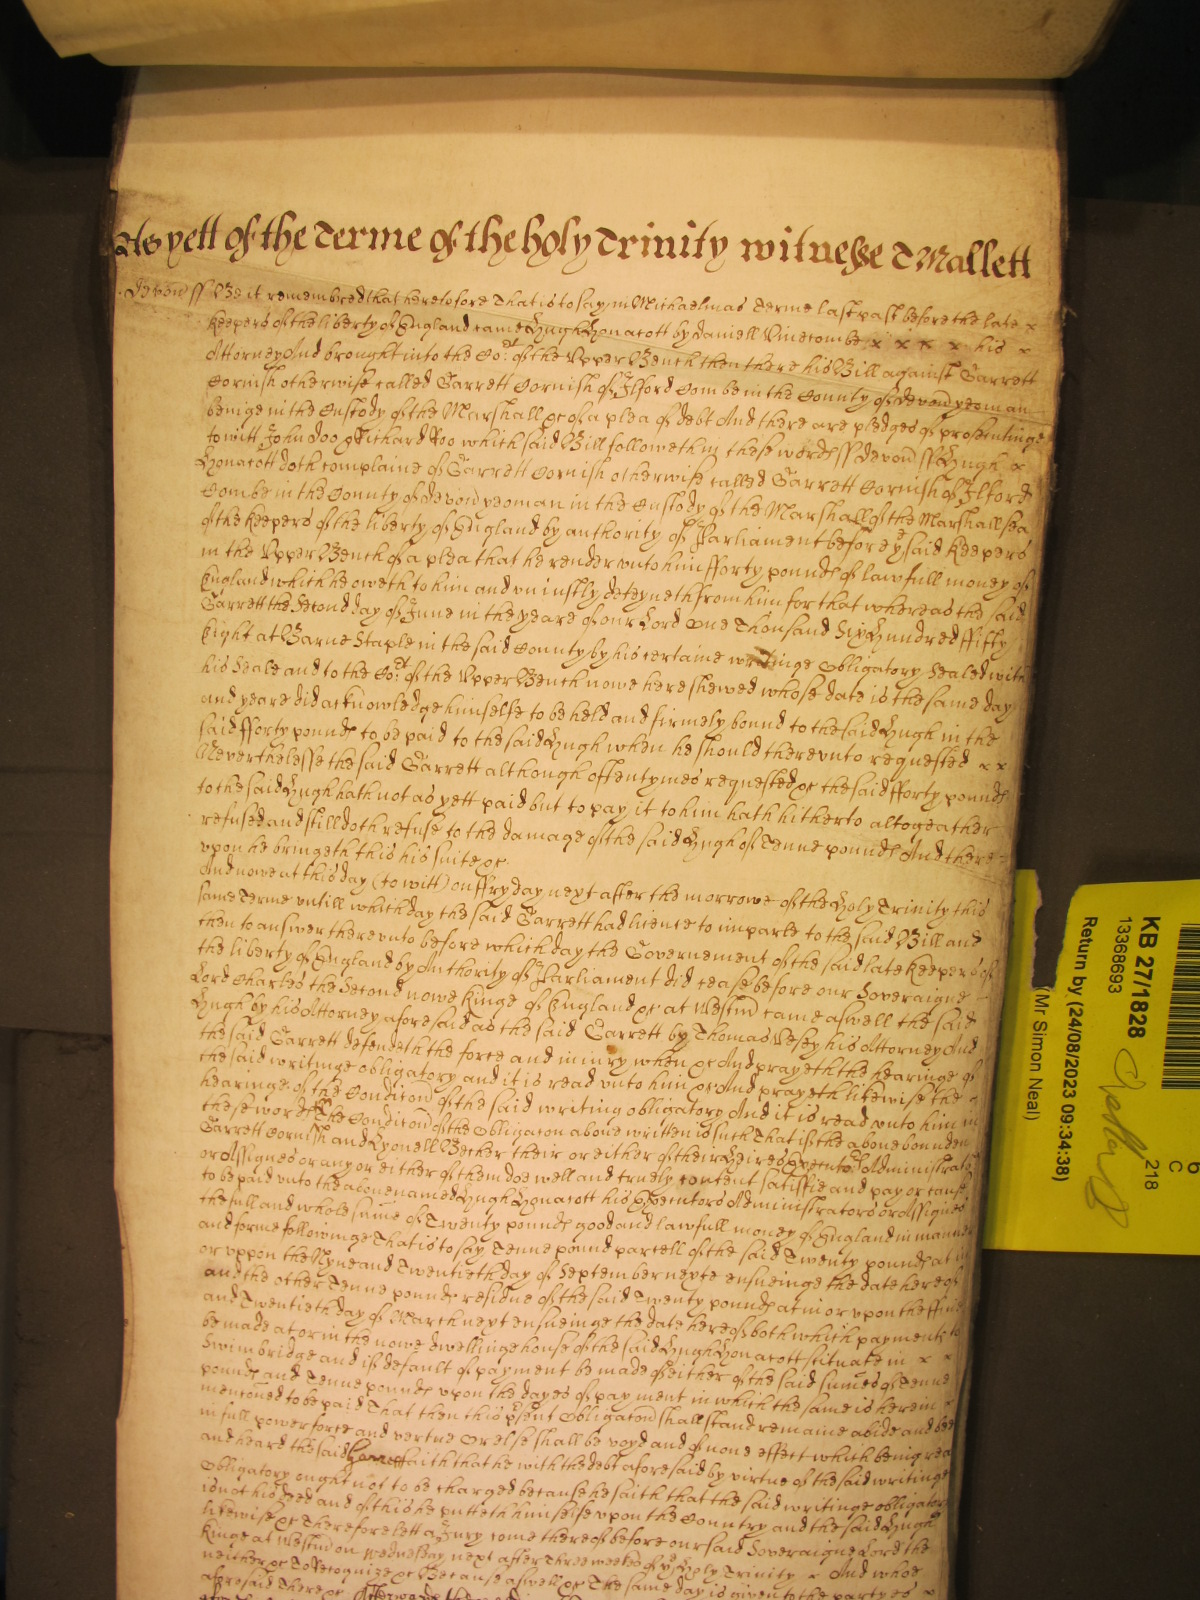 As yett of the Terme of the holy Trinity witnesse T Mallett
Devon ss Be it remembred that heretofore That is to say in Michaelmas Terme last past before the late x
keepers of the liberty of England came Hugh Honacott by Daniell Vinecombe x x x x his x
Attorney And brought into the Cort of the Upper Bench then there his Bill against Garrett
Cornish otherwise called Garrett Cornish of Ilford Combe in the County of Devon yeoman
beinge in the Custody of the Marshall &c of a plea of debt And there are pledges of prosecutinge
to witt John Doo & Richard Roo which said Bill followeth in these words ss Devon ss Hugh x
Honacott doth complaine of Garrett Cornish otherwise called Garrett Cornish of Ilford
Combe in the County of Devon yeoman in the Custody of the Marshall of the Marshallsea
of the keepers of the liberty of England by authority of Parliament before ye said keepers
in the Upper Bench of a plea that he render unto him fforty pounds of lawfull money of
England which he oweth to him and uniustly deteyneth from him for that whereas the said
Garrett the Second day of June in the yeare of our Lord one Thousand Six Hundred ffifty
Eight at Barnestaple in the said County by his certaine writinge obligatory Sealed with
his Seale and to the Cort of the Upper Bench nowe here shewed whose date is the same day
and yeare did acknowledge himselfe to be held and firmely bound to the said Hugh in the
said fforty pounds to be paid to the said Hugh when he should thereunto requested x x
Neverthelesse the said Garrett although oftentymes requested &c the said fforty pounds
to the said Hugh hath not as yett paid but to pay it to him hath hitherto altogeather
refused and still doth refuse to the damage of the said Hugh of Tenne pounds And there
upon he bringeth this his suite &c
And nowe at this day (to witt) on ffryday next after the morrowe of the Holy Trinity this
same Terme untill which day the said Garrett had licence to imparle to the said Bill and
then to answer thereunto before which day the Governement of the said late keepers of
the liberty of England by Authority of Parliament did cease before our Soveraigne
Lord Charles the Second nowe Kinge of England &c at Westm came aswell the said
Hugh by his Attorney aforesaid as the said Garrett by Thomas Vesey his Attorney And
the said Garrett defendeth the force and iniury when &c And prayeth the hearinge of
the said writinge obligatory and it is read unto him &c And prayeth likewise the
hearinge of the Condicon of the said writing obligatory And it is read unto him in
these words The Condicon of the obligacon above written is such That if the above bounden
Garrett Cornish and Lyonell Becher their or either of their Heires Executors Administrators
or Assignes or any or either of them doe well and truely content satisfie and pay or cause
to be paid unto the abovenamed Hugh Honacott his Executors Administrators or Assignes
the full and whole sume of Twenty pounds good and lawfull money of England in manner
and forme followinge That is to say Tenne pound parcell of the said Twenty pounds at in
or uppon the Nyne and Twentieth day of September nexte ensueinge the date hereof
and the other Tenne pounds residue of the said Twenty pounds at in or upon the ffive
and Twentieth day of March next ensueinge the date hereof both which payments to
be made at or in the nowe dwellinge house of the said Hugh Honacott scituate in x x
Swimbridge and if default of payment be made of either of the said sumes of Tenne
pounds and Tenne pounds upon the dayes of payment in which the same is herein
mentoned to be paid That then this psent obligacon shall stand remaine abide and bee
in full power force and vertue or else shall be voyd and of none effect which being read
and heard the said Garrett saith that he with the debt aforesaid by virtue of the said writinge
obligatory ought not to be charged because he saith that the said writinge obligatory
is not his deed and of this he putteth himselfe upon the Country and the said Hugh
likewise &c Therefore lett a Jury come thereof before our said Soveraigne Lord the
Kinge at Westm on Wednesday next after Three weekes of ye Holy Trinity x And whoe
neither &c To Recognize &c Because aswell &c The same day is given to the partyes x
aforesaid There &c
KB 27/1828
13368693
Return by (24/08/2023 09:34:38)
(Mr Simon Neal)
218
C
6